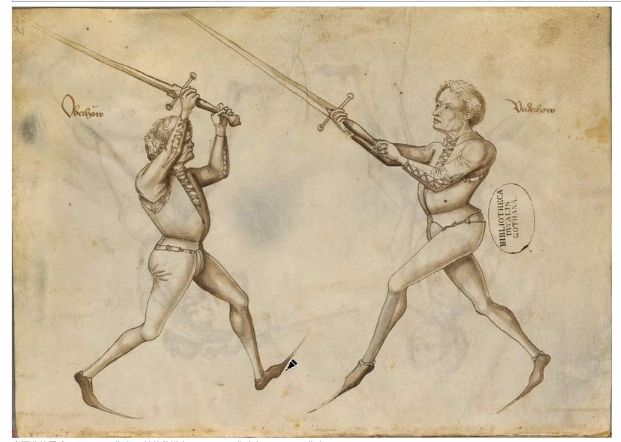 Oberhow
Vnderhow
BIBLIOTHECA
DVCALIS
GOTHANA.